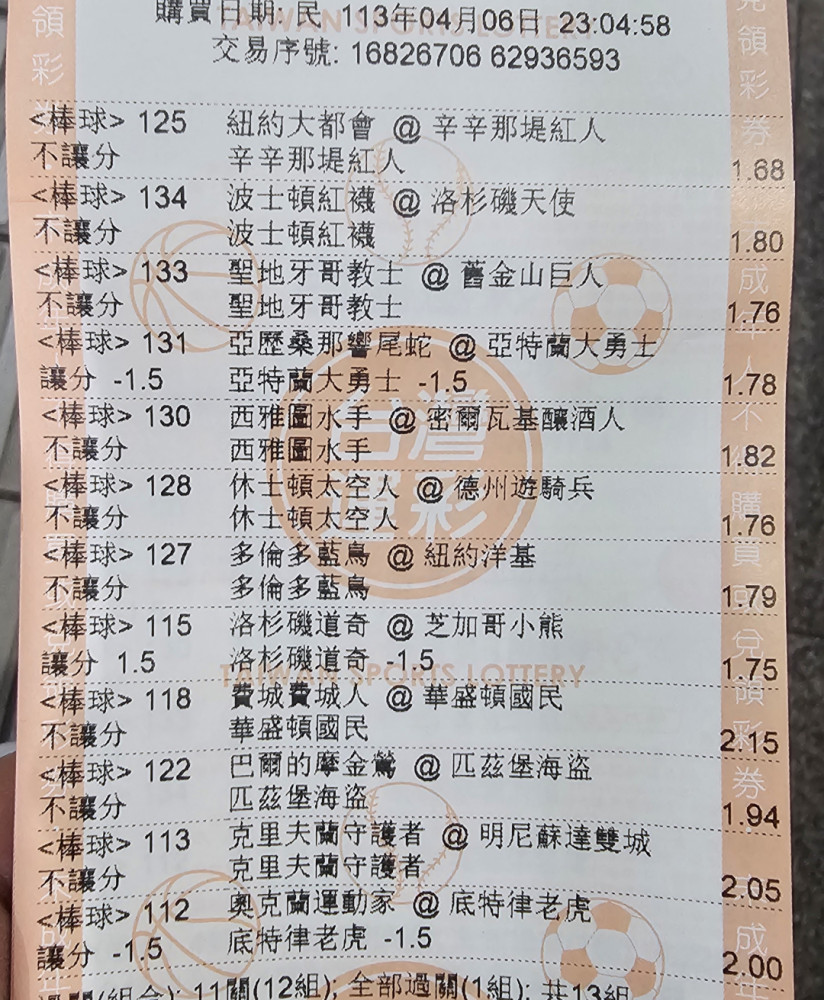 購買日期: 民 113年04月06日 23:04:58
交易序號: 16826706 62936593
<棒球> 125 紐約大都會 @ 辛辛那堤紅人
不讓分 辛辛那堤紅人 1.68
<棒球> 134 波士頓紅襪 @ 洛杉磯天使
不讓分 波士頓紅襪 1.80
<棒球> 133 聖地牙哥教士 @ 舊金山巨人
不讓分 聖地牙哥教士 1.76
<棒球> 131 亞歷桑那響尾蛇 @ 亞特蘭大勇士
讓分 -1.5 亞特蘭大勇士 -1.5 1.78
<棒球> 130 西雅圖水手 @ 密爾瓦基釀酒人
不讓分 西雅圖水手 1.82
<棒球> 128 休士頓太空人 @ 德州遊騎兵
不讓分 休士頓太空人 1.76
<棒球> 127 多倫多藍鳥 @ 紐約洋基
不讓分 多倫多藍鳥 1.79
<棒球> 115 洛杉磯道奇 @ 芝加哥小熊
讓分 1.5 洛杉磯道奇 -1.5 1.75
<棒球> 118 費城費城人 @ 華盛頓國民
不讓分 華盛頓國民 2.15
<棒球> 122 巴爾的摩金鶯 @ 匹茲堡海盜
不讓分 匹茲堡海盜 1.94
<棒球> 113 克里夫蘭守護者 @ 明尼蘇達雙城
不讓分 克里夫蘭守護者 2.05
<棒球> 112 奧克蘭運動家 @ 底特律老虎
讓分 -1.5 底特律老虎 -1.5 2.00
過關(組合): 11關(12組); 全部過關(1組); 共13組
TAIWAN SPORTS LOTTERY
台灣運彩
TAIWAN SPORTS LOTTERY